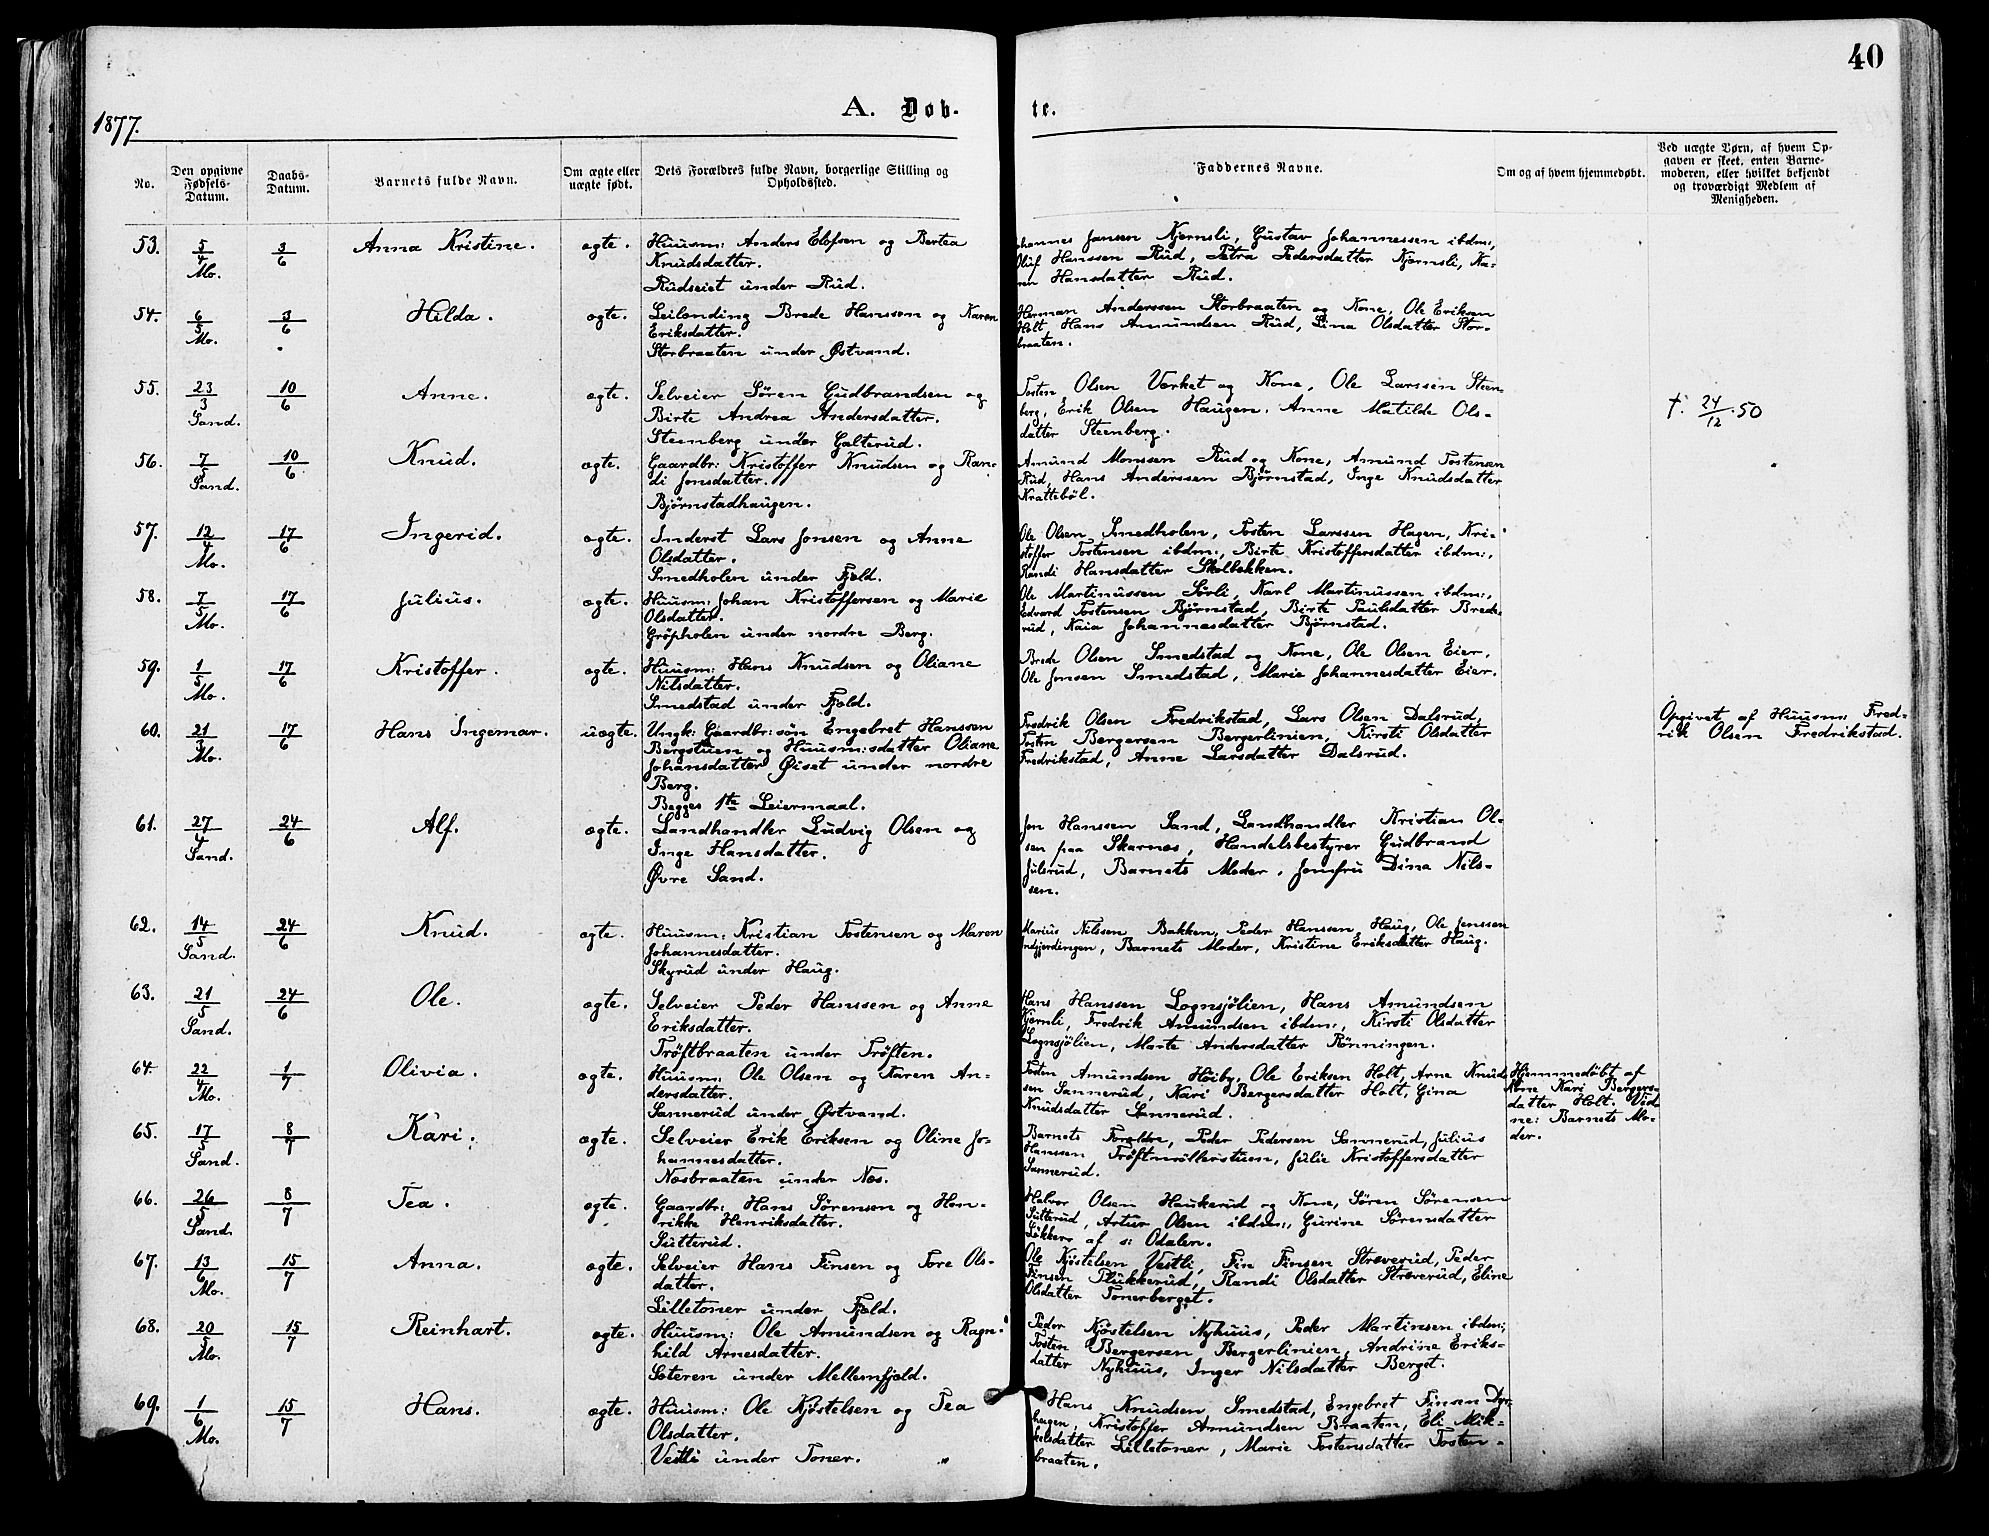 40
1877.
A. Døb-
te.
No.
Den opgivne Fødsels-Datum.
Daabs-Datum.
Barnets fulde Navn.
Om ægte eller uægte født.
Dets Forældres fulde Navn, borgerlige Stilling og Opholdssted.
Faddernes Navne.
Om og af hvem hjemmedøbt.
Ved uægte Børn, af hvem Op-
gaven er skeet, enten Barne-
moderen, eller hvilket bekjendt
og troværdigt Medlem af
Menigheden.
53. 5/4 Mo. 3/6 Anna Kristine. ægte.
Huusm: Anders Elofsen og Bertea
Knudsdatter.
Rudseiet under Rud.
Johannes Jansen Kjernsli, Gustav Johannessen ibdm:,
Oluf Hanssen Rud, Petra Pedersdatter Kjernsli, Ka-
ren Hansdatter Rud.
54. 6/5 Mo. 3/6 Hilda. ægte.
Leilænding Brede Hanssen og Karen
Eriksdatter.
Storbraaten under Østvand.
Herman Anderssen Storbraaten og Kone, Ole Eriksen
Holt, Hans Amundsen Rud, Lina Olsdatter Stor-
braaten.
55. 23/3 Sand. 10/6 Anne. ægte.
Selveier Søren Gudbrandsen og
Birte Andrea Andersdatter.
Steenberg under Galterud.
Tosten OlsenVærket og Kone, Ole Larssen Steen-
berg, Erik Olsen Haugen, Anne Matilde Ols-
datter Steenberg.
†. 24/12.50
56. 7/5 Sand. 10/6 Knud. ægte.
Gaardbr: Kristoffer Knudsen og Ran-
di Jonsdatter.
Bjørnstadhaugen.
Amund Monssen Rud og Kone, Amund Tostensen
Rud, Hans Anderssen Bjørnstad, Inge Knudsdatter
Krattebøl.
57. 12/4 Mo. 17/6 Ingerid. ægte.
Inderst Lars Jonsen og Anne
Olsdatter.
Smedholen under Fjeld.
Ole Olsen Smedholen, Tosten Larssen Hagen, Kri-
stoffer Tostensen ibdm:, Birte Kristoffersdatter ibdm:,
Randi Hansdatter Skolbekken.
58. 7/5 Mo. 17/6 Julius. ægte.
Huusm: Johan Kristoffersen og Marie
Olsdatter.
Grøpholen under nordre Berg.
Ole Martinussen Sørli, Karl Martinussen ibdm:,
Edvard Tostensen Bjørnstad, Birte Paulsdatter Brede-
rud, Kaia Johannesdatter Bjørnstad.
59. 1/5 Mo. 17/6 Kristoffer. ægte.
Huusm: Hans Knudsen og Oliane
Nilsdatter.
Smedstad under Fjeld.
Brede Olsen Smedstad og Kone, Ole Olsen Eier,
Ole Jonsen Smedstad, Marie Johannesdatter Eier.
60. 21/3 Mo. 17/6 Hans Ingemar. uægte.
Ungk: Gaardbr:søn Engebret Hanssen
Bergstuen og Huusm:sdatter Oliane
Johansdatter Øiset under nordre
Berg.
Begges 1te Leiermaal.
Fredrik Olsen Fredrikstad, Lars Olsen Dalsrud,
Tosten Bergersen Bergerlinien, Kirsti Olsdatter
Fredrikstad, Anne Larsdatter Dalsrud.
Opgivet af Huusm: Fred-
rik Olsen Fredrikstad.
61. 27/4 Sand. 24/6 Alf. ægte.
Landhandler Ludvig Olsen og
Inge Hansdatter.
Øvre Sand.
Jon Hanssen Sand, Landhandler Kristian Ol-
sen paa Skarnes, Handelsbestyrer Gudbrand
Julsrud, Barnets Moder, Jomfru Dina Nils-
sen.
62. 14/5 Sand. 24/6 Knud. ægte.
Huusm: Kristian Tostensen og Maren
Johannesdatter.
Skyrud under Haug.
Marius Nilssen Bakken, Peder Hanssen Haug, Ole Jenssen
Indgjerdingen, Barnets Moder, Kristine Eriksdatter Haug.
63. 21/5 Sand. 24/6 Ole. ægte.
Selveier Peder Hanssen og Anne
Eriksdatter.
Trøftbraaten under Trøften.
Hans Hanssen Lognsjølien, Hans Amundsen
Kjernli, Fredrik Amundsen ibdm:, Kirsti Olsdatter
Lognsjølien, Marte Andersdatter Rønningen.
64. 22/4 Mo. 1/7 Olivia. ægte.
Huusm: Ole Olsen og Karen An-
dersdatter.
Sannerud under Østvand.
Tosten Amundsen Høiby, Ole Eriksen Holt, Arne Knud-
sen Sannerud, Kari Bergersdatter Holt, Gina
Knudsdatter Sannerud.
Hjemmedøbt af
Kone Kari Bergers-
datter Holt. Vid-
ne: Barnets Mo-
der.
65. 17/5 Sand. 8/7 Kari. ægte.
Selveier Erik Eriksen og Oline Jo-
hannesdatter.
Næsbraaten under Næs.
Barnets Forældre, Peder Pedersen Sannerud, Julius
Hanssen Trøftmøllerstuen, Julie Kristoffersdatter
Sannerud.
66. 26/5 Sand. 8/7 Tea. ægte.
Gaardbr: Hans Sørensen og Hen-
rikke Henriksdatter.
Sutterud.
Halvor Olsen Haukerud og Kone, Søren Sørensen
Sutterud, Artur Olsen ibdm:, Gurine Sørensdatter
Løkker af s: Odalen.
67. 13/6 Mo. 15/7 Anna. ægte.
Selveier Hans Finsen og Tore Ols-
datter.
Lilletoner under Fjeld.
Ole Kjøstelsen Vestli, Fin Finsen Stræverud, Peder
Finsen Plukkerud, Randi Olsdatter Stræverud, Eline
Olsdatter Tonerberget.
68. 20/5 Mo. 15/7 Reinhart. ægte.
Huusm: Ole Amundsen og Ragn-
hild Arnesdatter.
Sæteren under Mellemfjeld.
Peder Kjøstelsen Nyhuus, Peder Martinsen ibdm:,
Tosten Bergersen Bergerlinien, Andrine Eriks-
datter Nyhuus, Inger Nilsdatter Berget.
69. 1/6 Mo. 15/7 Hans. ægte.
Huusm: Ole Kjøstelsen og Tea
Olsdatter.
Vestli under Toner.
Hans Knudsen Smedstad, Engebret Finsen Dyr-
haugen, Kristoffer Amundsen Braaten, Eli Mik-
kelsdatter Lilletoner, Marie Tostensdatter Tosten-
braaten.